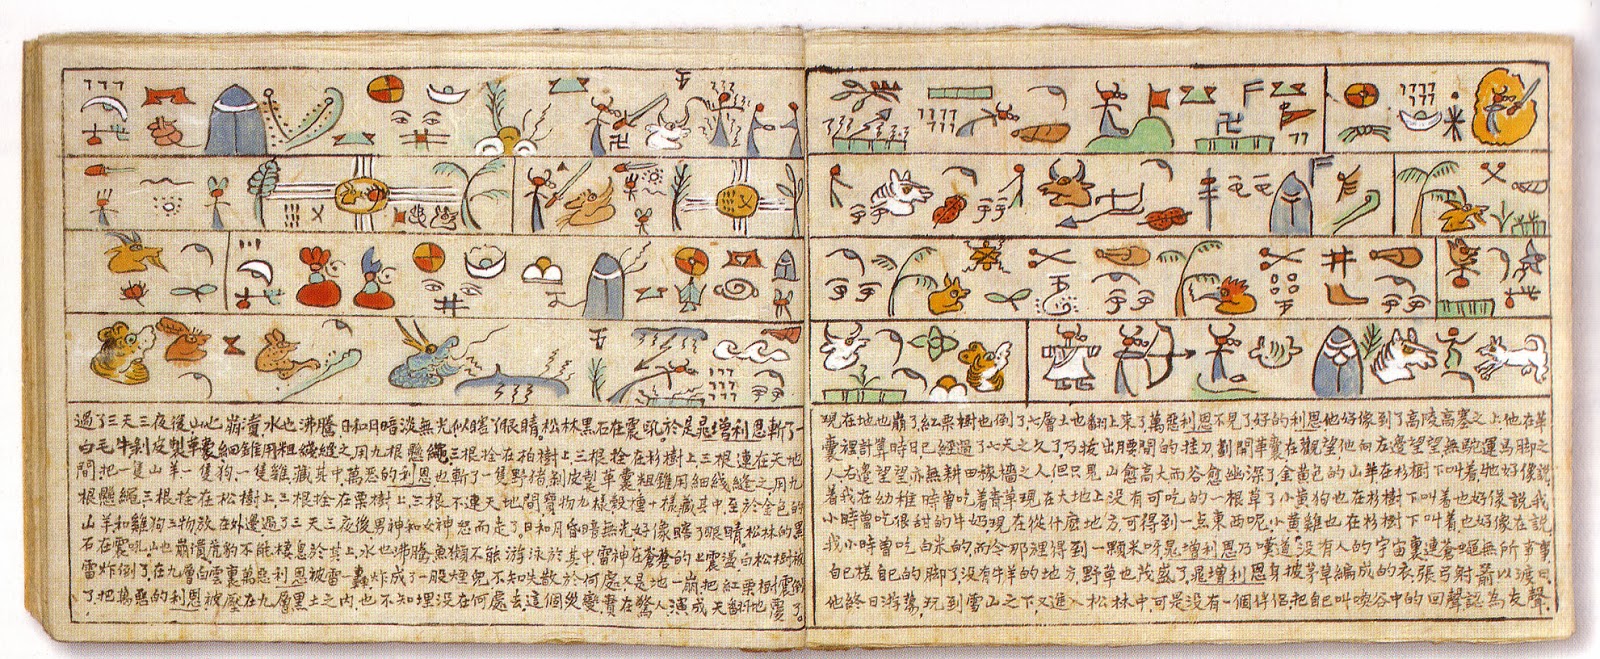 過了三天三夜後山也崩潰水也沸騰日和月暗淡無光似瞎了眼睛松林黑石在震吼於是晁增利恩斬了一
白毛牛剝皮製革囊細錐用粗綫縫之用九根懸繩三根拴在柏樹上三根拴在杉樹上三根連在天地
間把一隻山羊一隻狗、一隻雞藏其中萬惡的利恩也斬了一隻野猪剝皮製革囊粗錐用細綫縫之用九
根懸繩三根拴在松樹上、三根拴在栗樹上、三根不連天地間寶物九樣穀種十樣藏其中、至於金色的
山羊和雞狗三物放在外邊過了三天三夜後男神和女神怒而走了。日和月昏暗無光好像瞎了眼睛松林的黑
石在震吼山也崩潰虎豹不能棲息於其上水也沸騰魚獺不能游泳於其中雷神在蒼蒼的上震盪白松樹被
雷炸倒了、在九層白雲裏萬惡利恩被雷一轟炸成了一股煙兒不知失散於何處又是地一崩把紅栗樹震倒
了把萬惡的利恩被壓在九層黑土之内、也不知埋没在何處去這個災變實在驚人、演成天翻地覆了。
現在地也崩了紅栗樹也倒了七層土也翻上來了萬惡利恩不見了好的利恩他好像到了高陵高塞之上他在革
囊裡計算時日已經過了七天之久了乃拔出腰間的挂刀劃開革囊在觀望他向左邊望望無馱運馬脚之
人右邊望望亦無耕田犂牆之人但只見山愈高大而谷愈幽深了金黄色的山羊在杉樹下叫着牠好像說
着我在幼稚時曾吃着青草現在大地上沒有可吃的一根草了小黄狗也在杉樹下叫着也好像說我
小時曾吃很甜的牛奶、現在從什麽地方可得到一点東西呢小黄雞也在杉樹下叫着也好像在說
我小時曾吃白米的而今那裡得到一顆米呀晁增利恩乃嘆道没有人的宇宙裏連蒼蠅無所事事
自己搓自己的脚了没有牛羊的地方、野草也茂盛了晁增利恩身披茅草編成的衣張弓射箭以渡日
他終日游蕩、玩到雪山之下又進入松林中可是没有一個伴侣把自己叫喚谷中的回聲認為友聲、